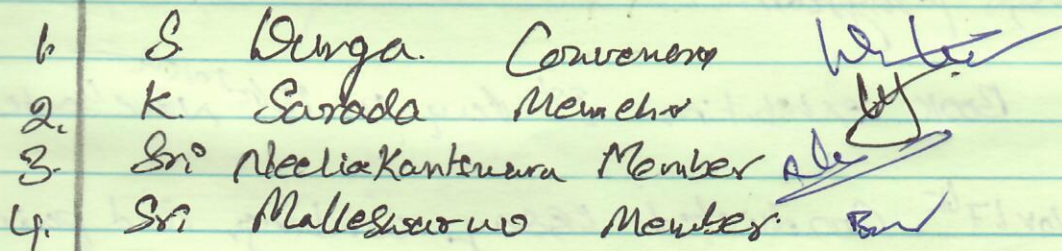 1. S. Durga. Convenor
2. K. Sarada Member
3. Sri Neelia Kanteswara Member
4. Sri Malleswaruo Member.